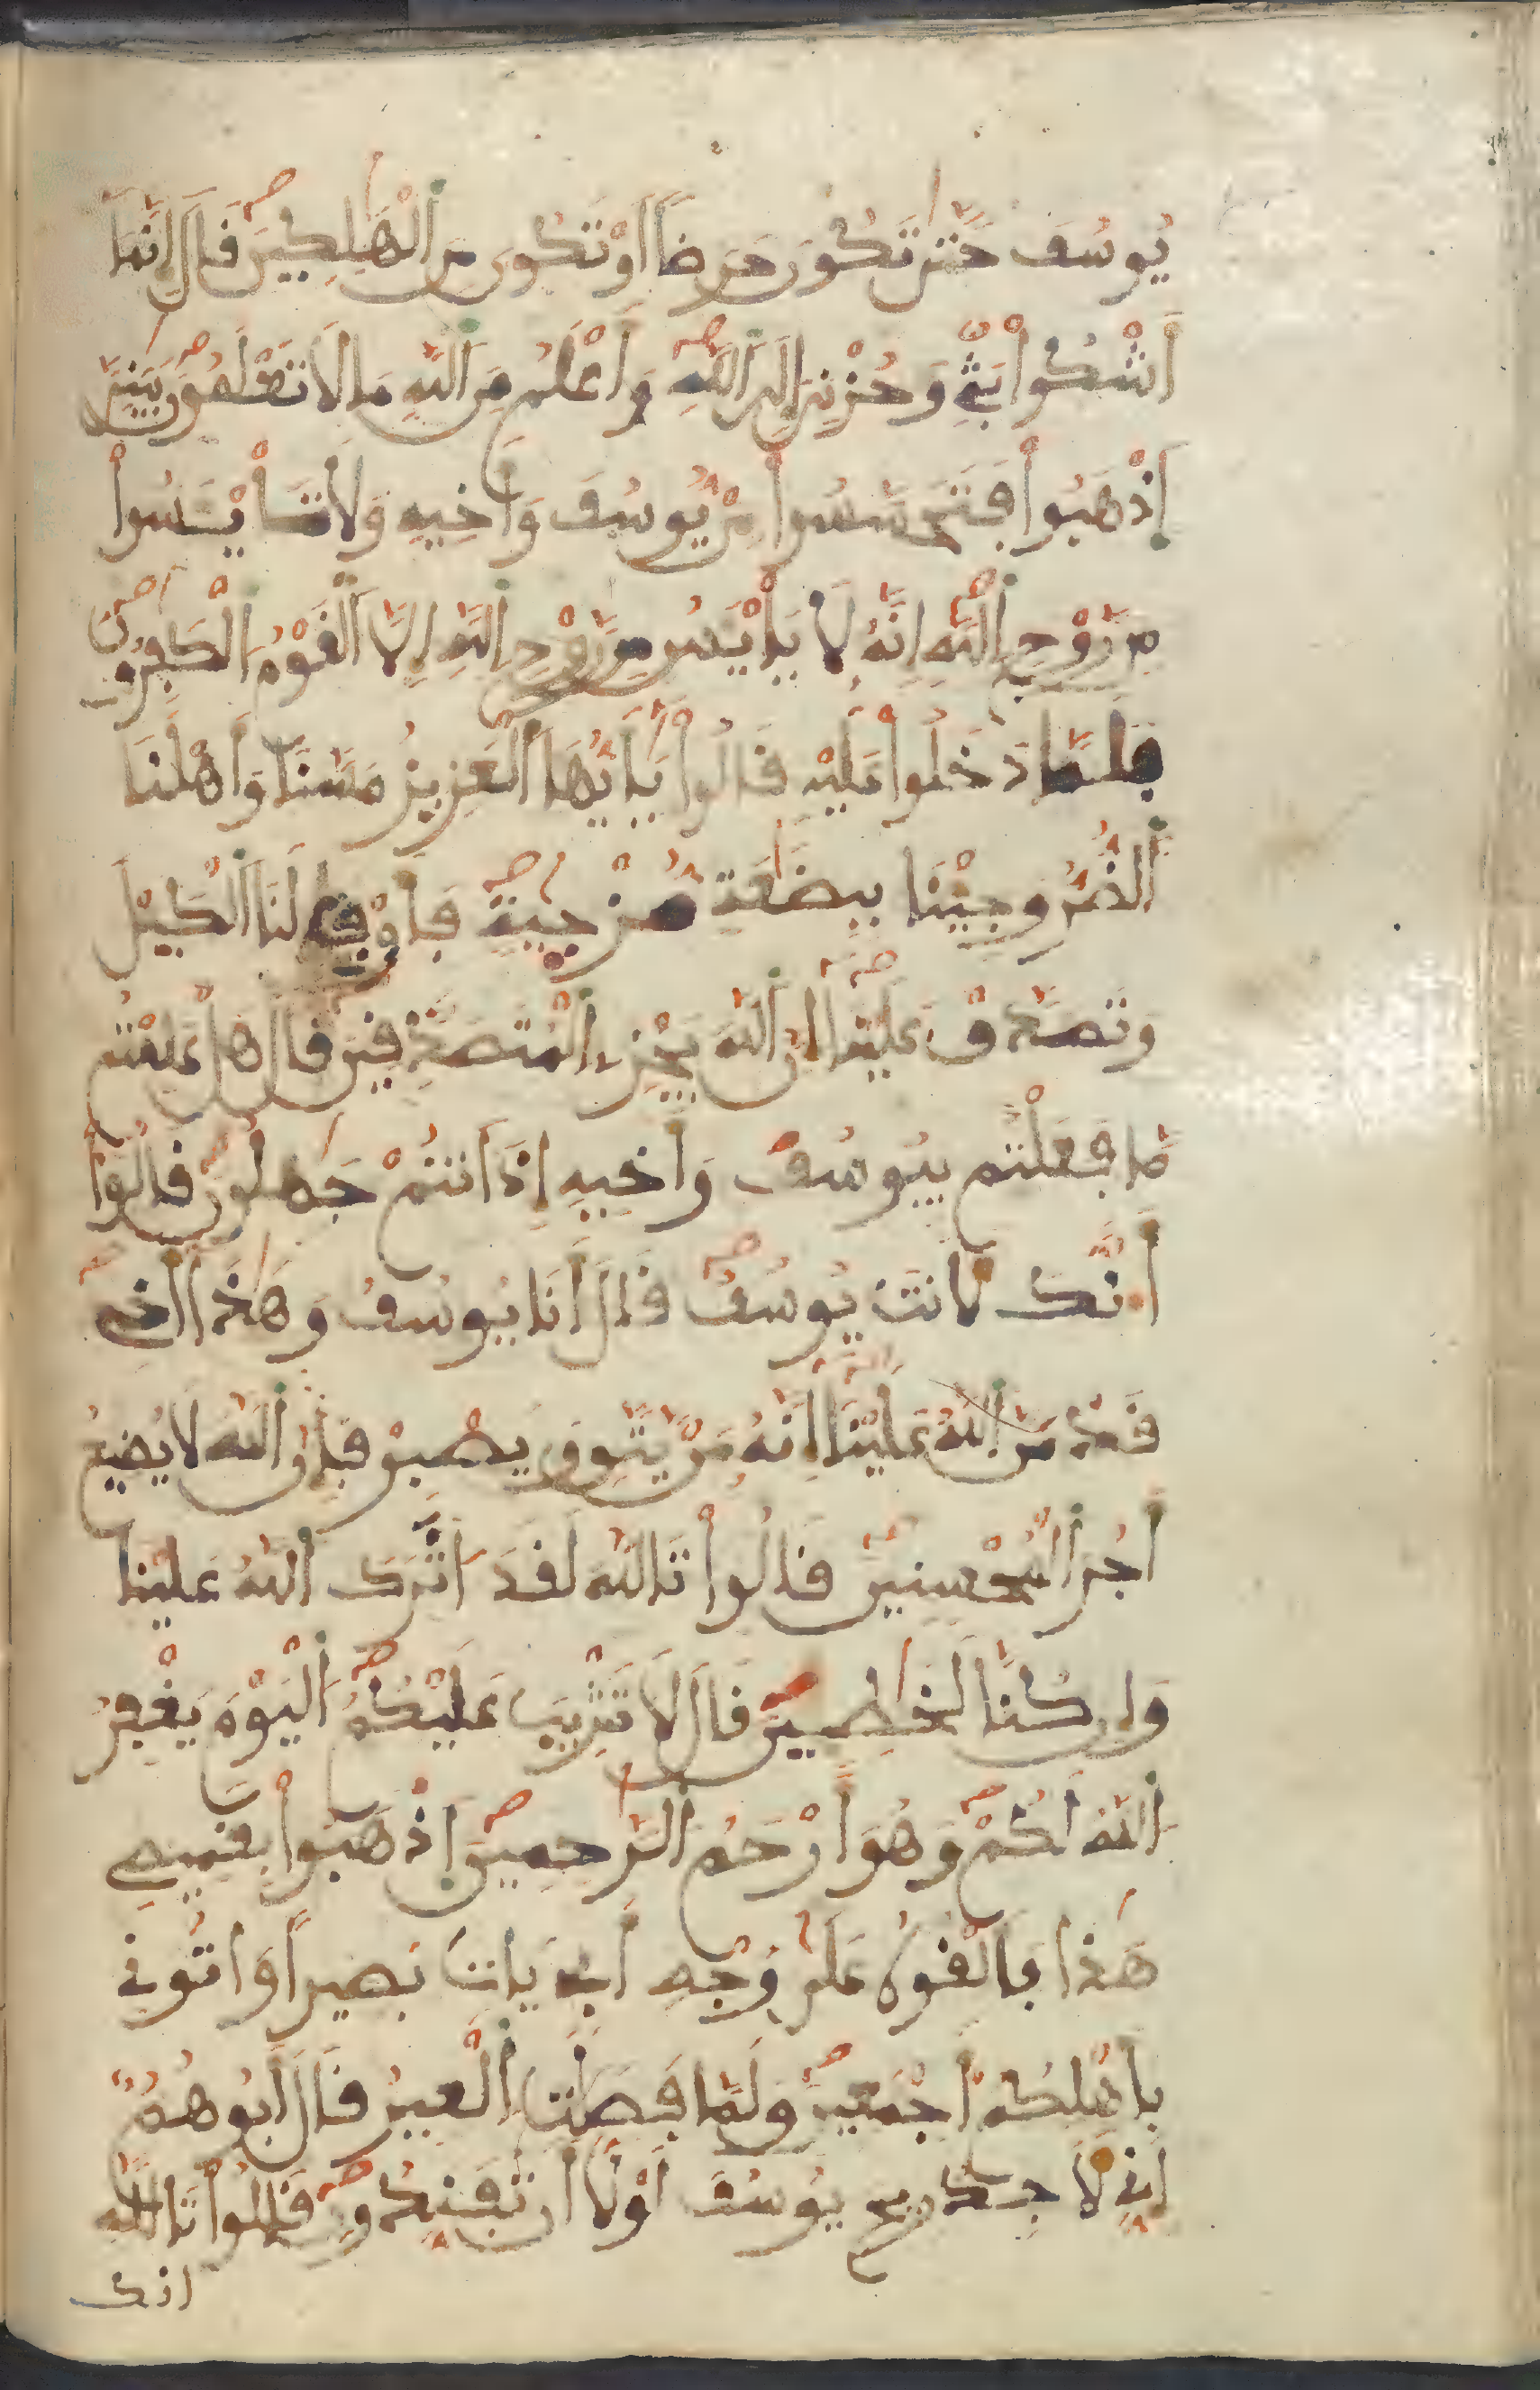 يُوسُفَ حَتَّىٰ تَكُونَ حَرَضاً اَوْ تَكُونَ مِنَ اَلْهَٰلِكِينَ قَالَ إِنَّمَا
أَشْكُواْ بَثِّے وَحُزْنِيَ إِلَى اَللَّهِ وَأَعْلَمُ مِنَ اَللَّهِ مَا لَا تَعْلَمُونَ يَٰبَنِيَّ
اَذْهَبُواْ فَتَحَسَّسُواْ مِنْ يُّوسُفَ وَأَخِيهِ وَلَا تَاْيْـَٔسُواْ
مِن رَّوْحِ اِللَّهِ إِنَّهُ لَا يَاْيْـَٔسُ مِن رَّوْحِ اِللَّهِ إِلَّا اَلْقَوْمُ اُلْكَٰفِرُونَ
فَلَمَّا دَخَلُواْ عَلَيْهِ قَالُواْ يَٰأَيُّهَا اَلْعَزِيزُ مَسَّنَا وَأَهْلَنَا
اَلضُّرُّ وَجِيْنَا بِبِضَٰعَةٍ مُّزْجَيٰةٍ فَأَوْفِ لَنَا اَلْكَيْلَ
وَتَصَدَّقْ عَلَيْنَا إِنَّ اَللَّهَ يَجْزِے اِلْمُتَصَدِّقِينَ قَالَ هَلْ عَلِمْتُم
مَّا فَعَلْتُم بِيُوسُفَ وَأَخِيهِ إِذَ اَنتُمْ جَٰهِلُونَ قَالُواْ
أَ.نَّكَ لَأَنتَ يُوسُفُ قَالَ أَنَا يُوسُفُ وَهَٰذَا أَخِے
قَدْ مَنَّ اَللَّهُ عَلَيْنَا إِنَّهُ مَنْ يَّتَّقِ وَيَصْبِرْ فَإِنَّ اَللَّهَ لَا يُضِيعُ
أَجْرَ اَلْمُحْسِنِينَ قَالُواْ تَاللَّهِ لَقَدَ اٰثَرَكَ اَللَّهُ عَلَيْنَا
وَإِن كُنَّا لَخَٰطِـِٕينَ قَالَ لَا تَثْرِيبَ عَلَيْكُمُ اُلْيَوْمَ يَغْفِرُ
اُللَّهُ لَكُمْ وَهُوَ أَرْحَمُ اُلرَّٰحِمِينَ اَذْهَبُواْ بِقَمِيصِے
هَٰذَا فَأَلْقُوهُ عَلَىٰ وَجْهِ أَبِے يَاتِ بَصِيراً وَاتُونِے
بِأَهْلِكُمُ أَجْمَعِينَ وَلَمَّا فَصَلَتِ اِلْعِيرُ قَالَ أَبُوهُمُ
إِنِّے لَأَجِدُ رِيحَ يُوسُفَ لَوْلَا أَن تُفَنِّدُونِ قَالُواْ تَاللَّهِ
انك